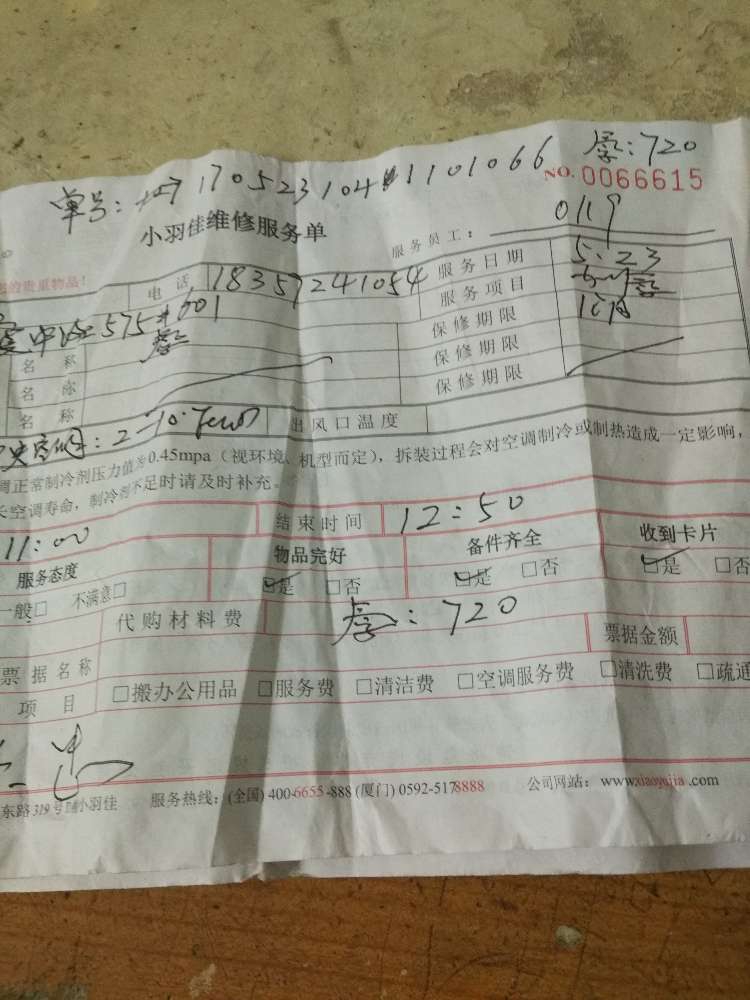 单号: 170523104 1101066 :720
NO.0066615
小羽佳维修服务单
服务员工: 0119
的贵重物品!
电话 18357241054
服务日期 5.23
服务项目
保修期限
保修期限
保修期限
575#601
名称
名称
名称
出风口温度
调正常制冷剂压力值为0.45mpa(视环境、机型而定),拆装过程会对空调制冷或制热造成一定影响,
长空调寿命,制冷剂不足时请及时补充。
11:00 结束时间 12:50
服务态度 物品完好 备件齐全 收到卡片
一般□ 不满意□ ☑是 □否 ☑是 □否 ☑是 □否
代购材料费 :720 票据金额
票据名称
项目 □搬办公用品 □服务费 □清洁费 □空调服务费 □清洗费 □疏通
东路319号 小羽佳 服务热线:(全国)400-6655-888(厦门)0592-5178888 公司网站:www.xiaoyujia.com